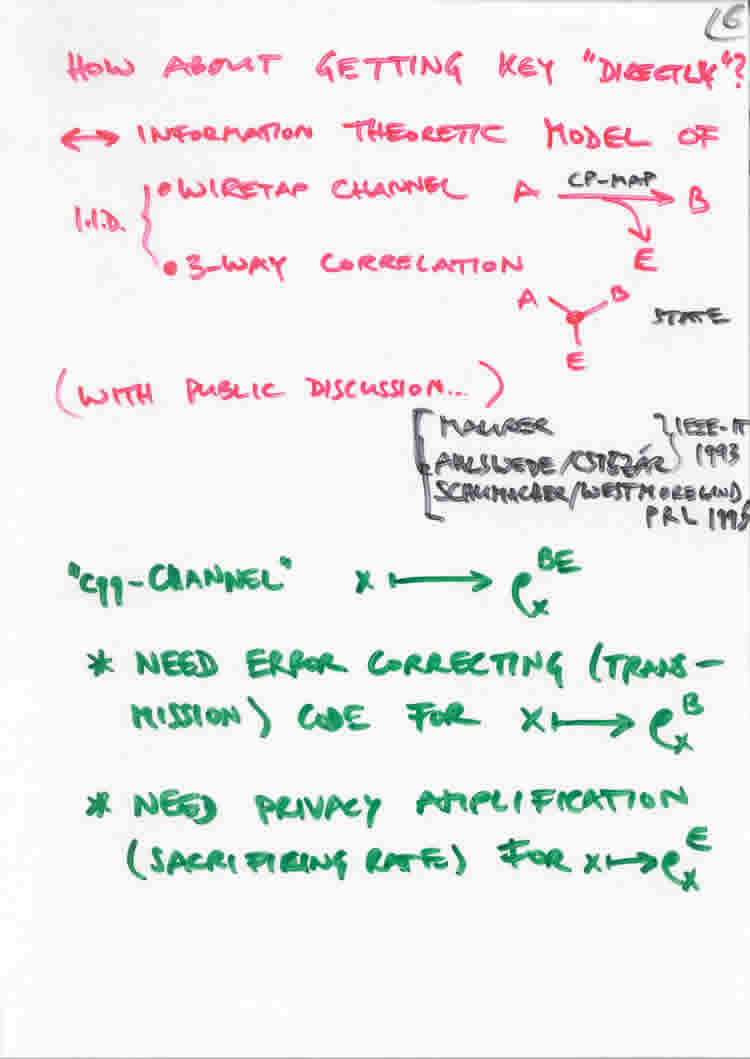 6
HOW ABOUT GETTING KEY "DIRECTLY"?
↔ INFORMATION THEORETIC MODEL OF
I.I.D. { • WIRETAP CHANNEL A CP-MAP → B
E
• 3-WAY CORRELATION
A B STATE
E
(WITH PUBLIC DISCUSSION...)
[ MAURER } IEEE-IT
AHLSWEDE/CSISZÁR } 1993
SCHUMACHER/WESTMORELAND
PRL 1998
"cqq-CHANNEL" x ⟼ ρ_x^BE
* NEED ERROR CORRECTING (TRANS-
MISSION) CODE FOR x ⟼ ρ_x^B
* NEED PRIVACY AMPLIFICATION
(SACRIFIRING RATE) FOR x ⟼ ρ_x^E